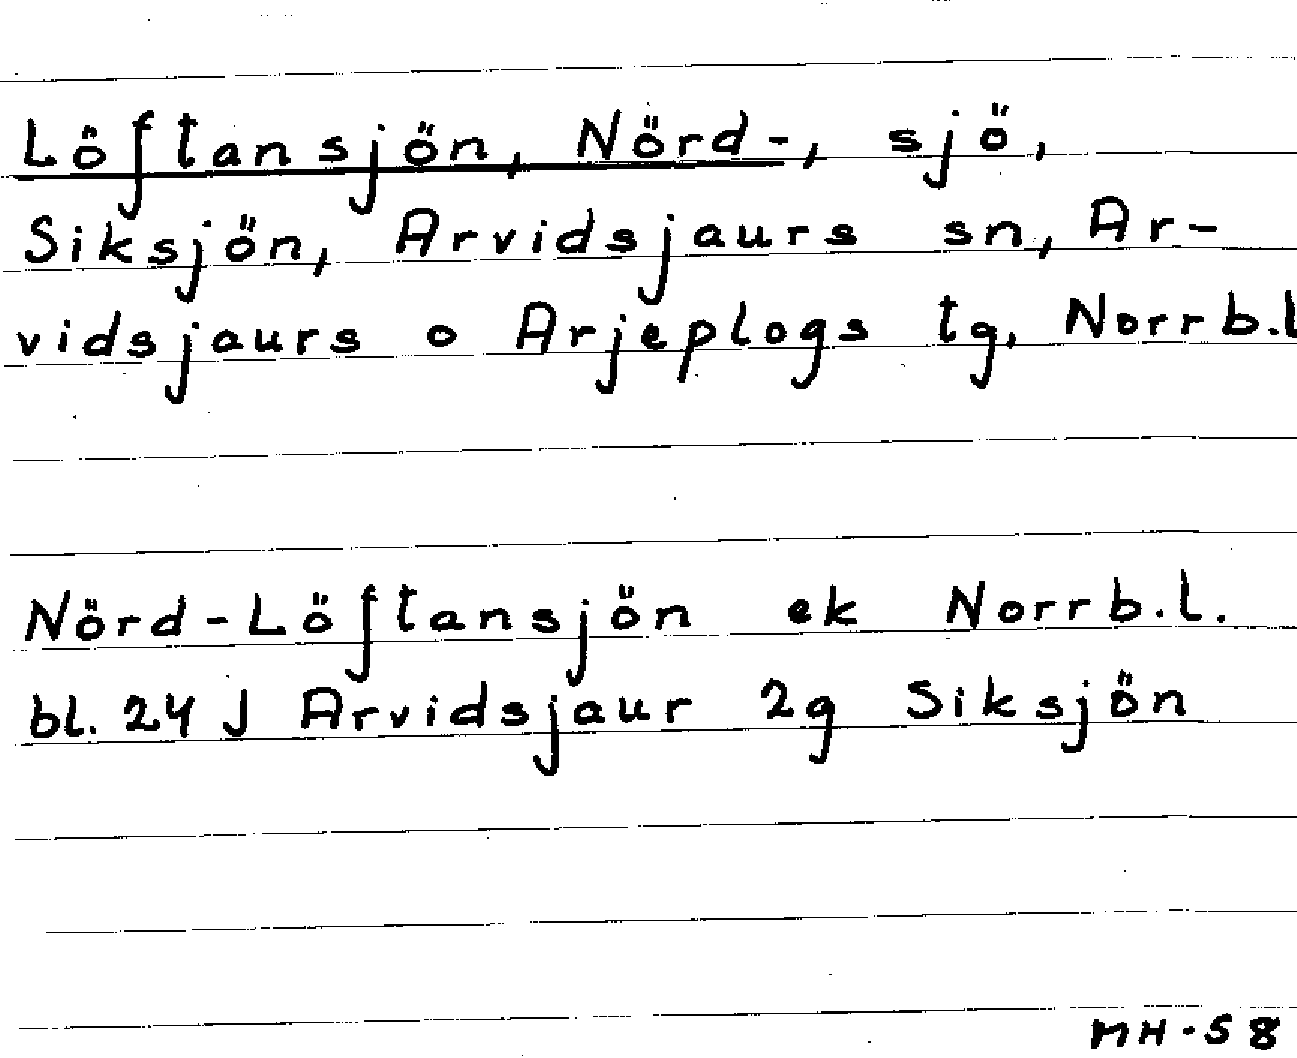 Löftansjön, Nörd-, sjö,
Siksjön, Arvidsjaurs sn, Ar-
vidsjaurs o Arjeplogs tg, Norrb.l
Nörd-Löftansjön ek Norrb.l.
bl. 24 J Arvidsjaur 2g Siksjön
MH-58